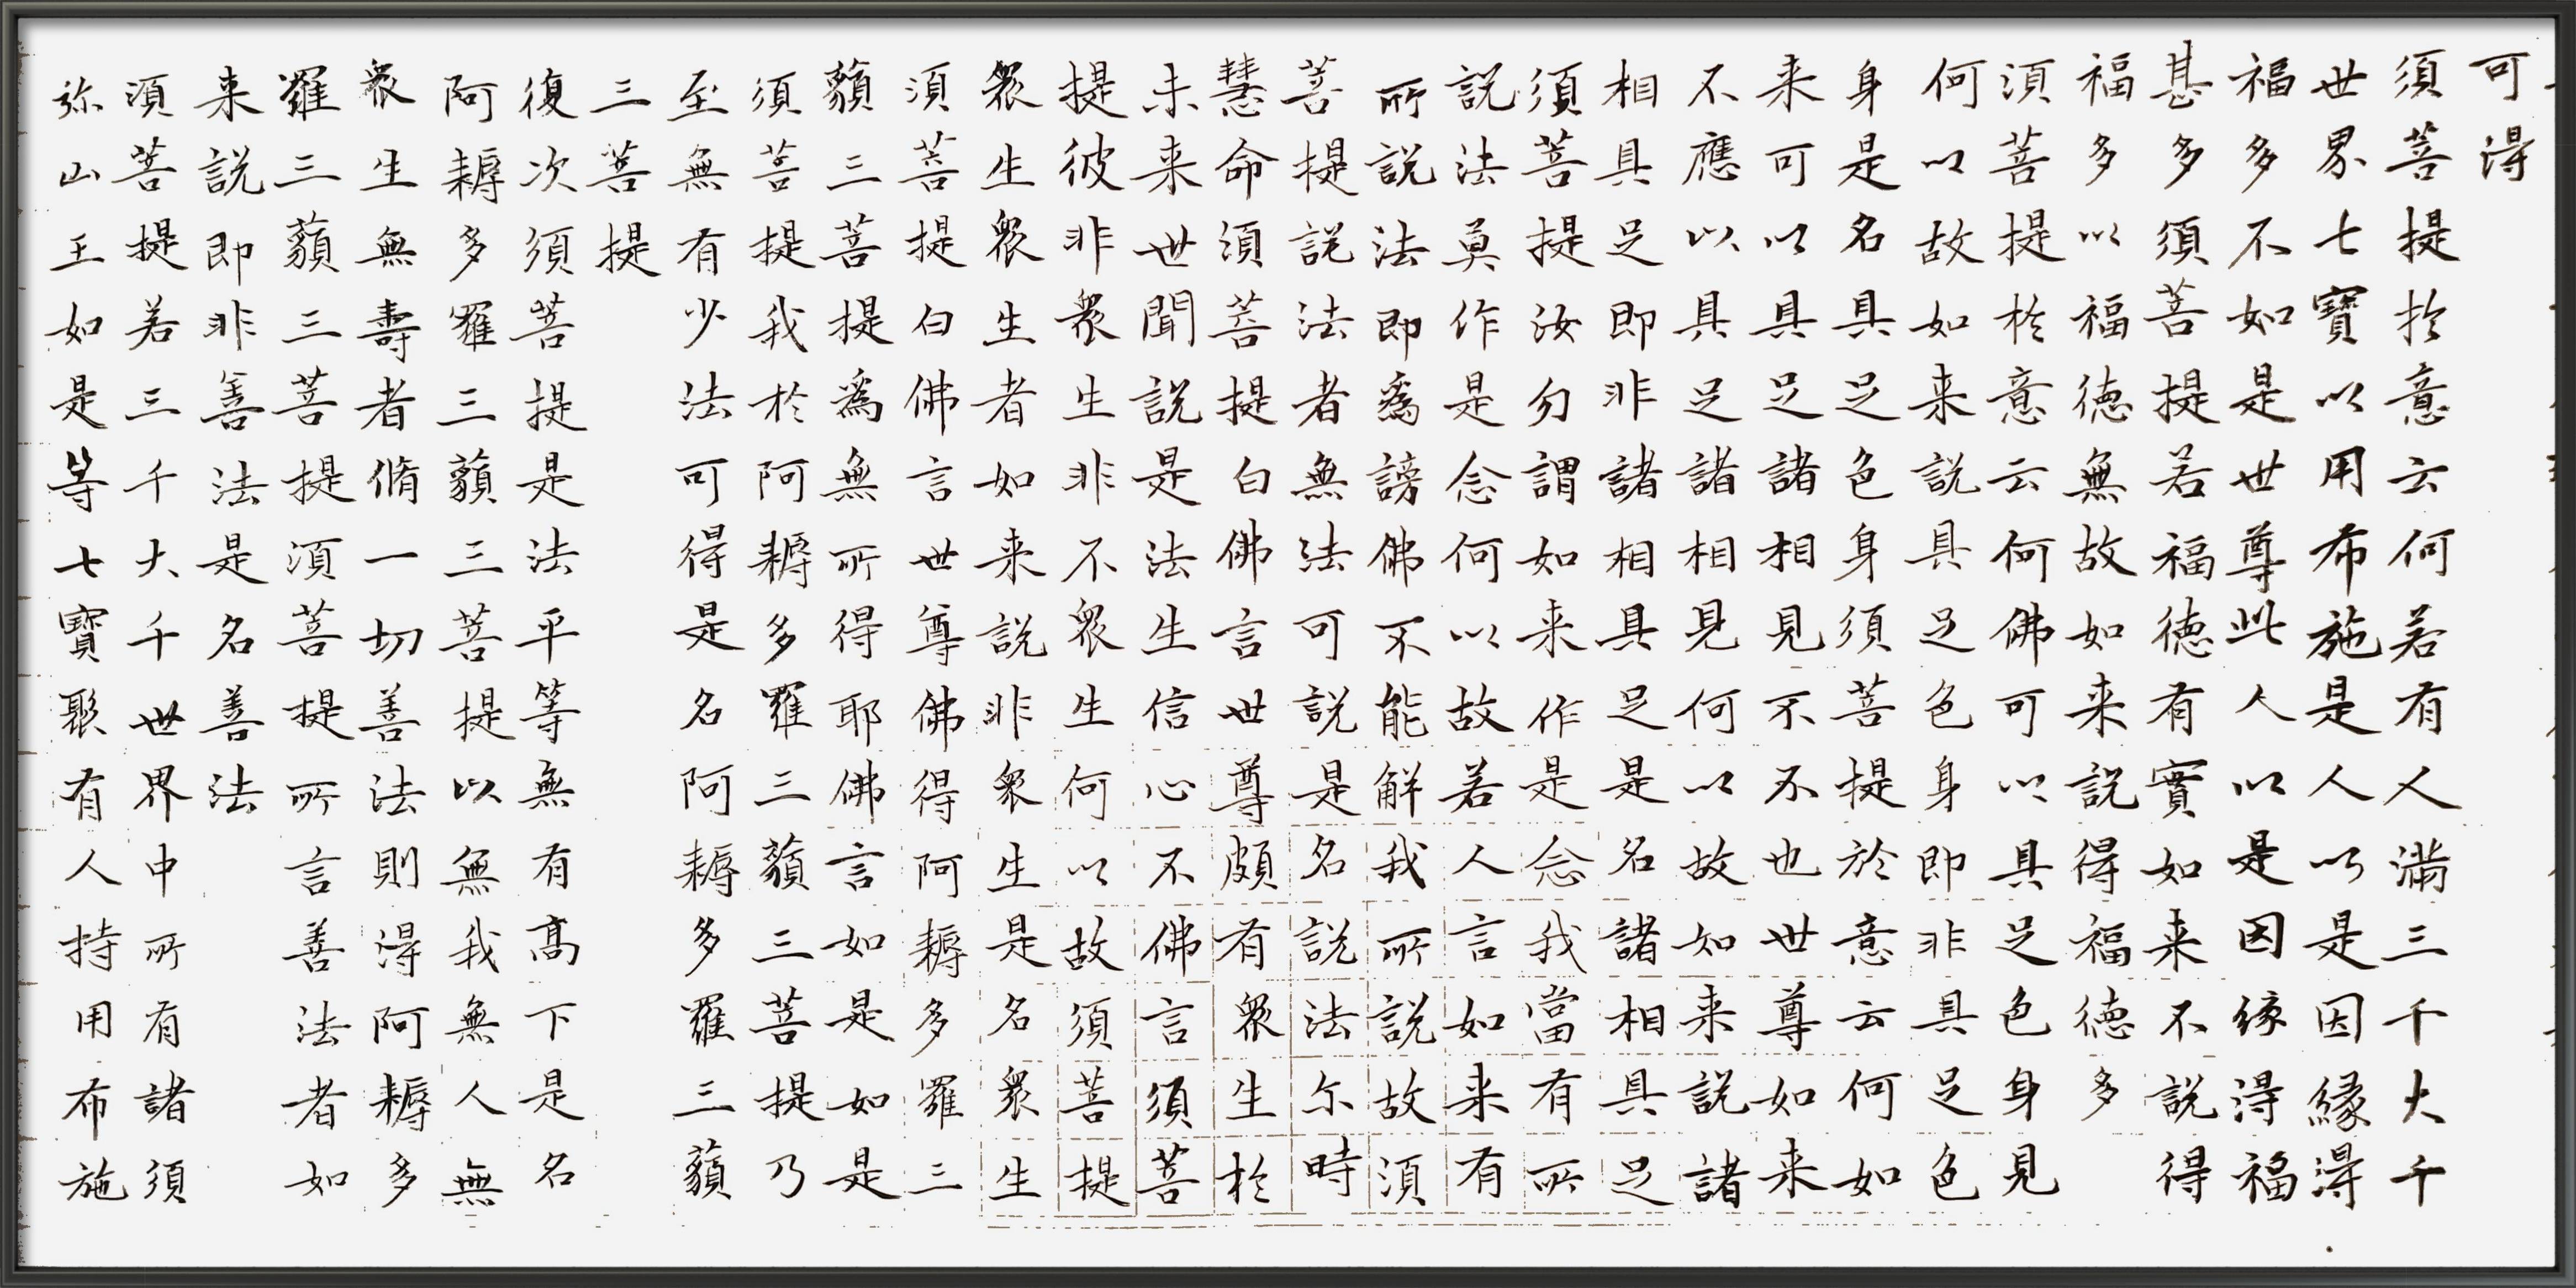 可得
須菩提扵意云何若有人滿三千大千
世界七寶以用布施是人以是因緣得
福多不如是世尊此人以是因緣得福
甚多須菩提若福德有實如来不說得
福多以福德無故如来說得福德多
須菩提扵意云何佛可以具足色身見
何以故如来說具足色身即非具足色
身是名具足色身須菩提於意云何如
来可以具足諸相見不不也世尊如来
不應以具足諸相見何以故如来說諸
相具足即非諸相具足是名諸相具足
須菩提汝勿謂如来作是念我當有所
說法莫作是念何以故若人言如来有
所說法即為謗佛不能解我所說故須
菩提說法者無法可說是名說法尔時
慧命須菩提白佛言世尊頗有眾生扵
未来世聞說是法生信心不佛言須菩
提彼非眾生非不眾生何以故須菩提
眾生眾生者如来說非眾生是名眾生
須菩提白佛言世尊佛得阿耨多羅三
藐三菩提為無所得耶佛言如是如是
須菩提我於阿耨多羅三藐三菩提乃
至無有少法可得是名阿耨多羅三藐
三菩提
復次須菩提是法平等無有髙下是名
阿耨多羅三藐三菩提以無我無人無
眾生無壽者脩一切善法則得阿耨多
羅三藐三菩提須菩提所言善法者如
来說即非善法是名善法
須菩提若三千大千世界中所有諸須
弥山王如是等七寶聚有人持用布施